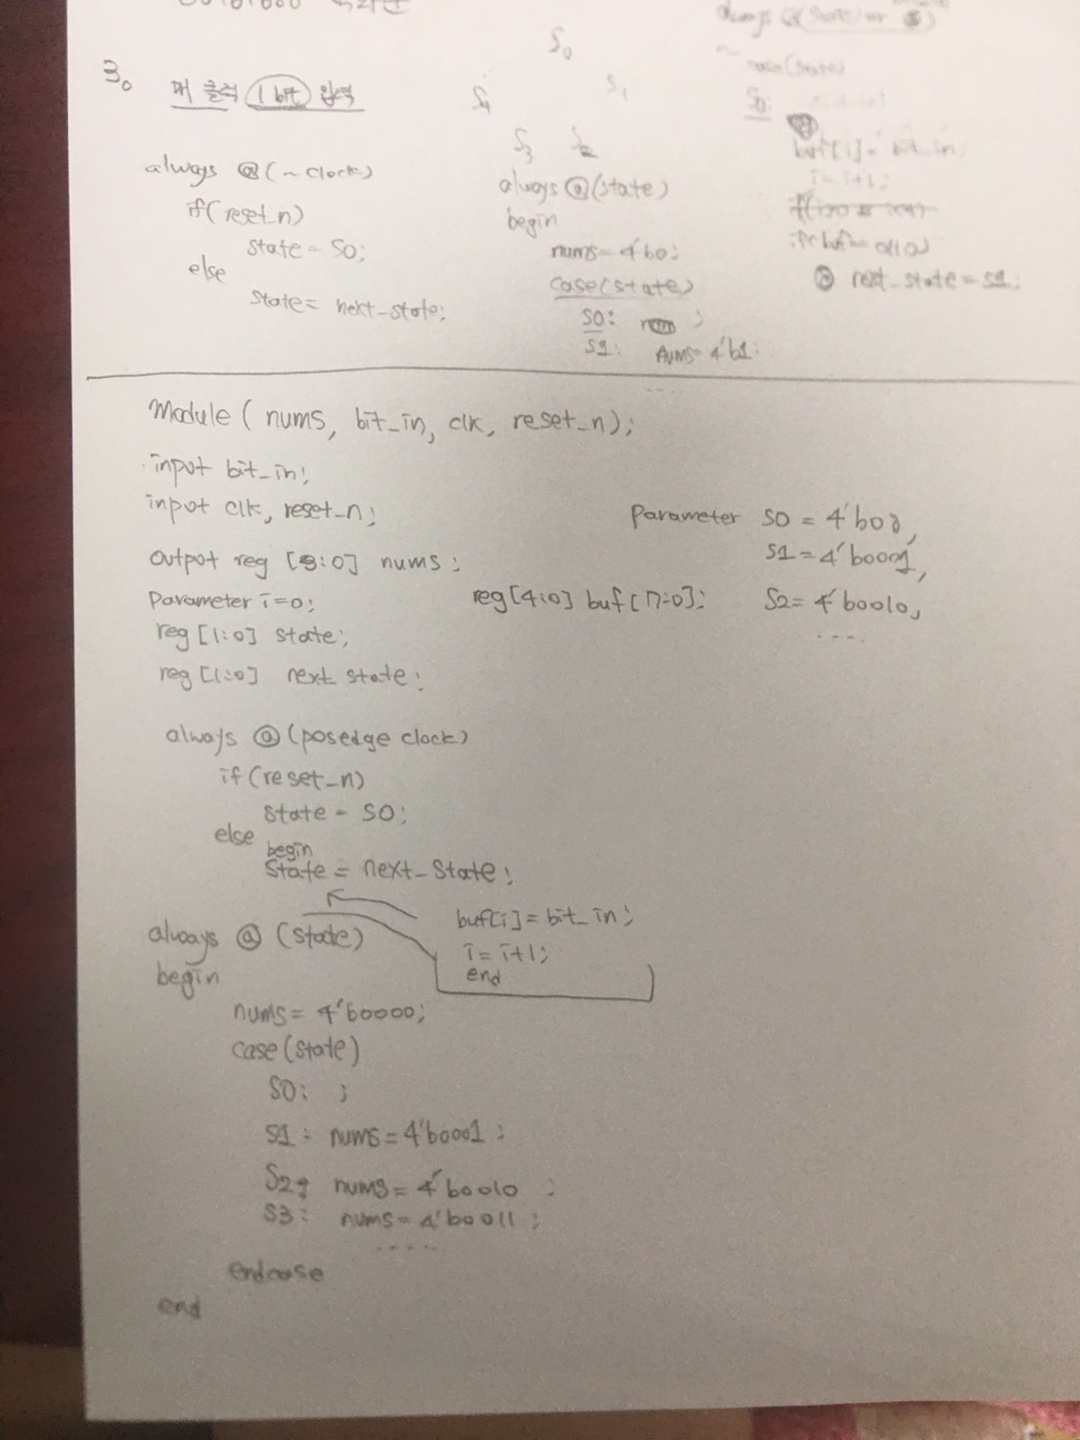 3.
매 클럭 1 bit 입력
always @(~clock)
if(reset_n)
state = S0;
else
state = next_state;
S0
S1
S4
S3 S2
always @(state)
begin
nums = 4'b0;
case(state)
S0: ;
S1: nums = 4'b1;
always @(state or
case(state)
S0:
buf[i] = bit_in;
i = i+1;
next_state = S1;
Module ( nums, bit_in, clk, reset_n);
input bit_in;
input clk, reset_n;
output reg [3:0] nums;
Parameter i=0;
reg [1:0] state;
reg [1:0] next_state;
reg[4:0] buf[7:0];
Parameter S0 = 4'b00,
S1 = 4'b0001,
S2 = 4'b0010,
....
always @ (posedge clock)
if (reset_n)
state = S0;
else
begin
State = next_State;
buf[i] = bit_in;
i = i+1;
end
always @ (state)
begin
nums = 4'b0000;
case (state)
S0: ;
S1: nums = 4'b0001;
S2: nums = 4'b0010;
S3: nums = 4'b0011;
....
endcase
end